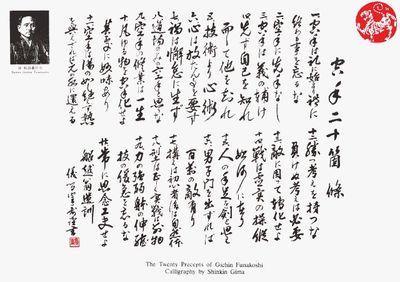 空手二十箇條
一空手は礼に始り礼に
終わる事を忘るな
二空手に先手なし
三空手は義の補け
四先づ自己を知れ
而して他を知れ
五技術より心術
六心は放たん事を要す
七禍は懈怠に生ず
八道場のみの空手と思うな
九空手の修業は一生
十凡ゆる物を空手化せよ
其処に妙味あり
十一空手は湯の如し絶えず熱
を与えざれば元の水に還える
十二勝つ考えを持つな
負けぬ考えは必要
十三敵に因って轉化せよ
十四戦は虚実の操縦
如何に在り
十五人の手足を剣と思え
十六男子門を出ずれば
百萬の敵有り
十七構は初心者に後は自然体
十八型は正しく実戦は別物
十九力の強弱体の伸縮
技の緩急を忘るな
廿常に思念工夫せよ
The Twenty Precepts of Gichin Funakoshi
Calligraphy by Shinkin Gima